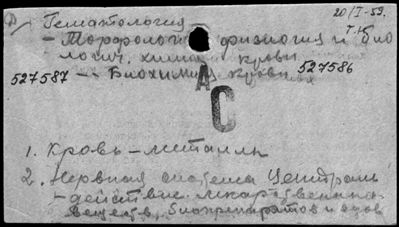 20/I-59.
Гематология
- Морфология физиология и био
логич. химия крови
527587 -- Биохимия крови 527586
А
С
1. Кровь - металлы
2. Нервная система Централь
- действие лекарственных
веществ, биопрепаратов и ядов